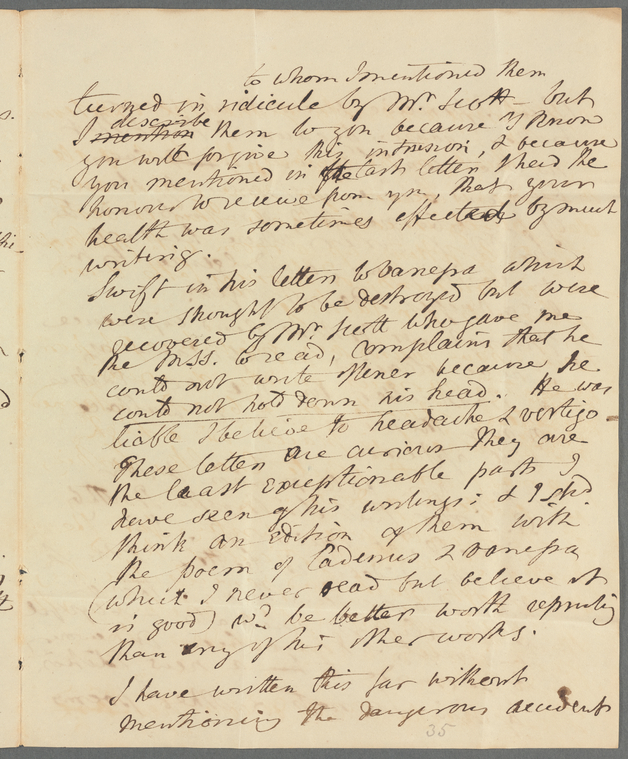 to whom I mentioned them
turned in ridicule by Mr. Scott — but
describe
I mention them to you because I know
you will forgive this intrusion, & because
you mentioned in the last letter I had the
honour to receive from you, that your
health was sometimes effected by much
writing.
Swift in his letters to Vanessa which
were thought to be destroyed but were
recovered by Mr Scott who gave me
the MSS. to read, complains that he
could not write oftener because he
could not hold down his head. He was
liable I believe to headache & vertigo
These letters are curious They are
the least exceptionable parts I
have seen of his writings; & I shd
think an edition of them with
the poem of Cadenus & Vanessa
(which I never read but believe it
is good) wd. be better worth reprinting
than any of his other works.
I have written this far without
mentioning the dangerous accident
35